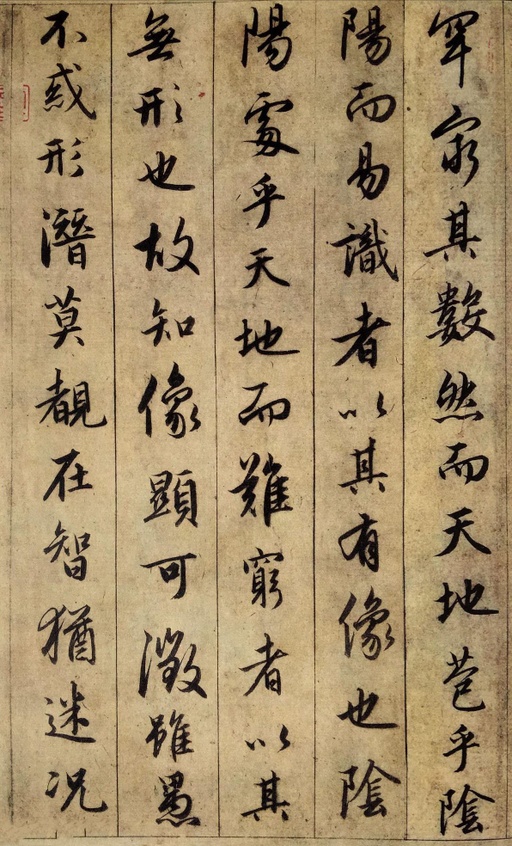 罕窮其數然而天地苞乎陰
陽而易識者以其有像也陰
陽處乎天地而難窮者以其
無形也故知像顯可徵雖愚
不惑形潛莫覩在智猶迷况